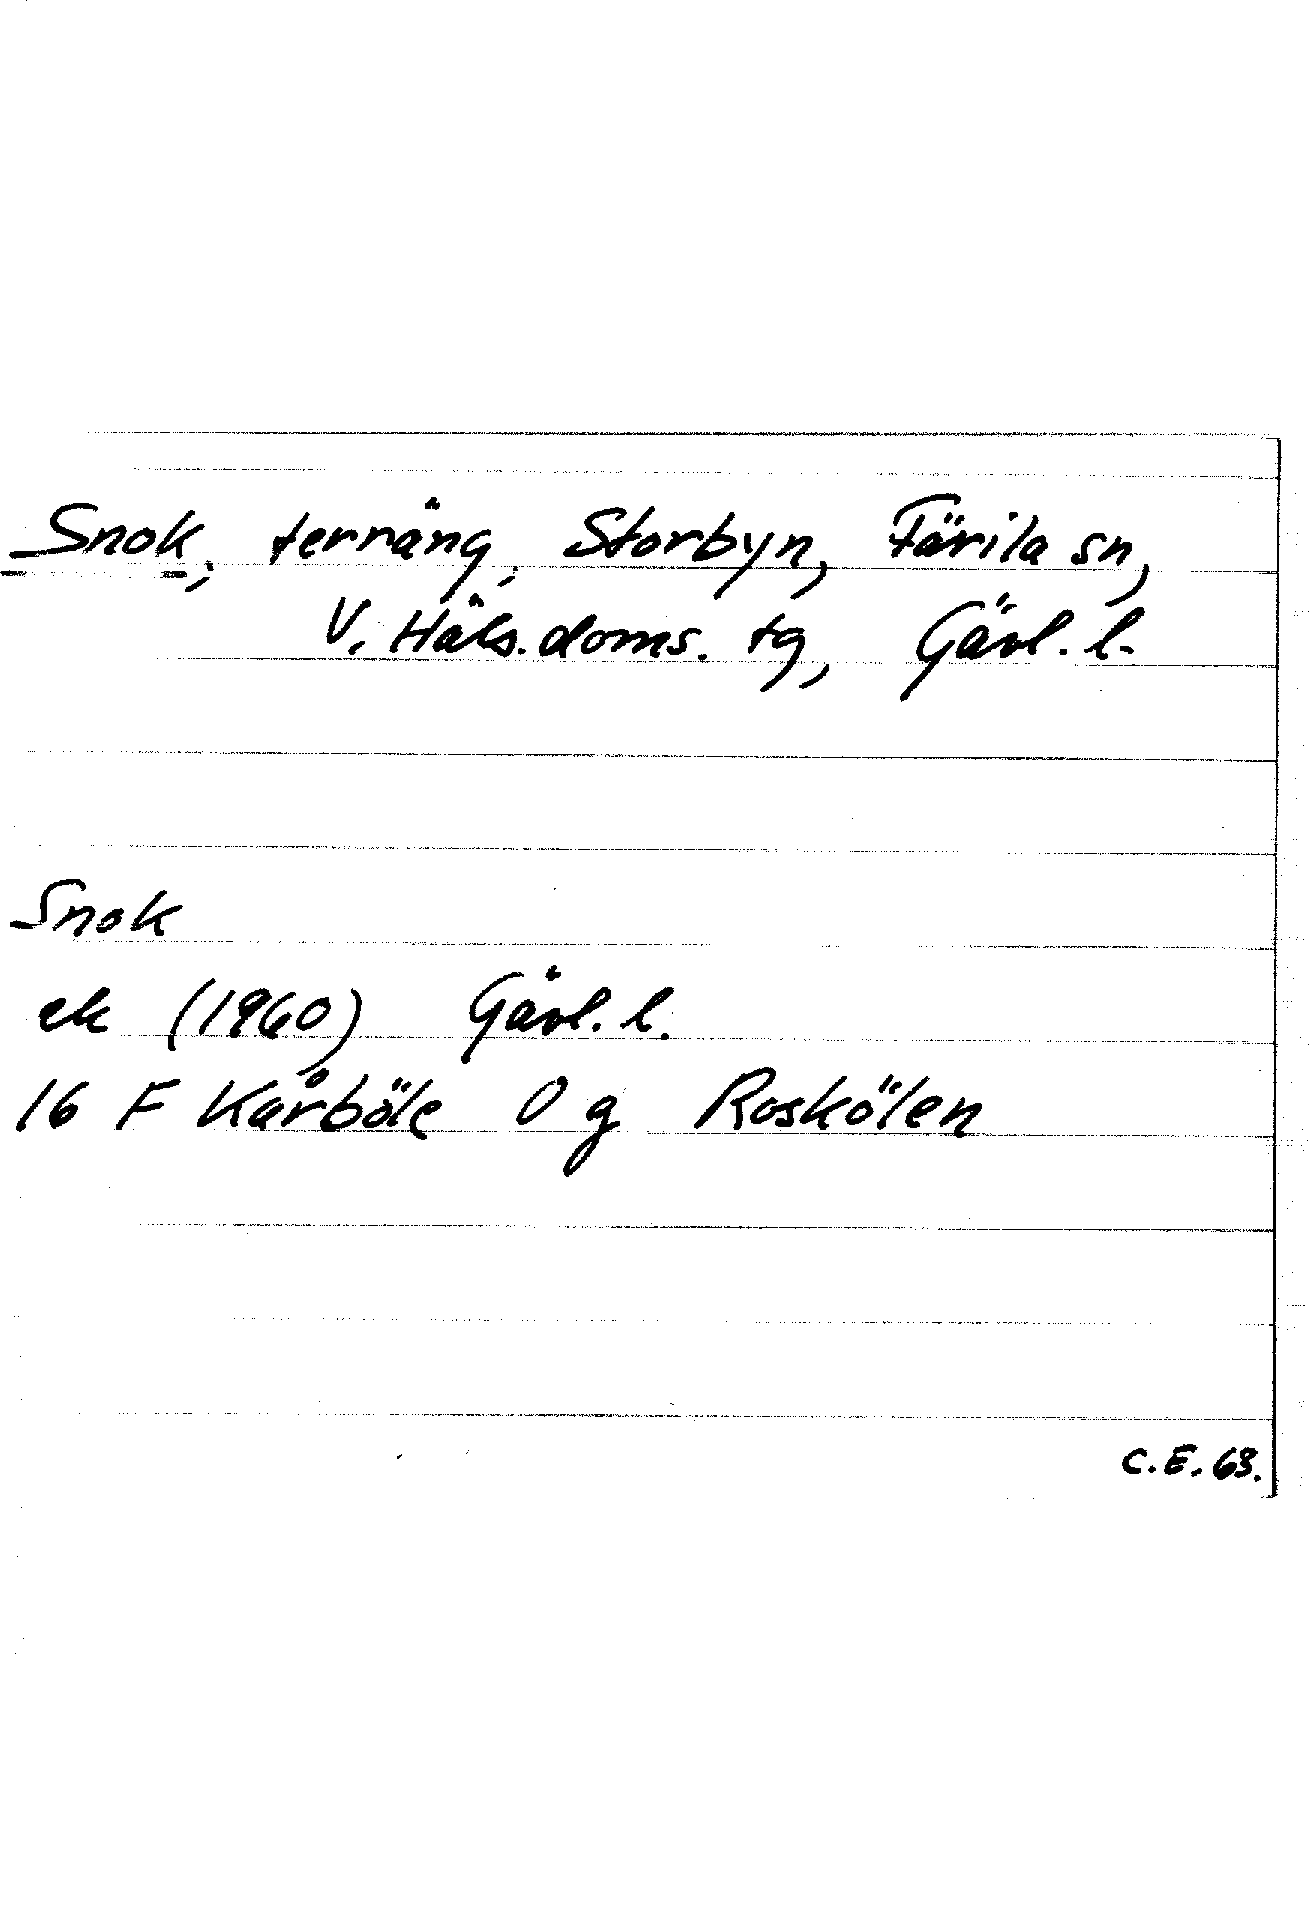 Snok, terräng, Storbyn, Färila sn,
V. Häls. doms. tg, Gävl. l.
Snok
ek (1960) Gävl. l.
16 F Kårböle 0 g Roskölen
C.E. 63.